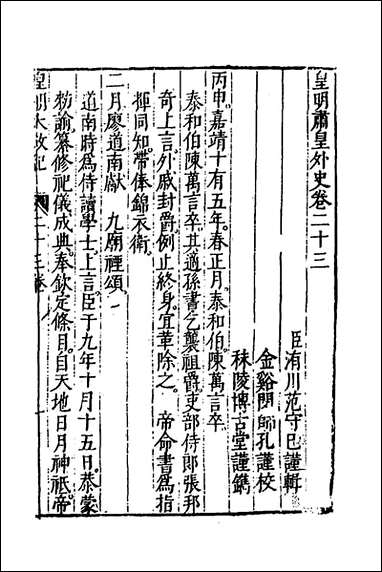 皇明肅皇外史卷二十三
臣洧川范守己謹輯
金谿閔師孔謹校
秣陵博古堂謹鐫
丙申嘉靖十有五年。春正月。泰和伯陳萬言卒
泰和伯陳萬言卒。其適孫書乞襲祖爵。吏部侍郎張邦
奇上言。外戚封爵。例止終身。宜革除之。 帝命書爲指
揮同知。帶俸錦衣衛。
二月廖道南獻 九廟禋頌。
道南時爲侍讀學士。上言。臣于九年十月十五日。恭蒙
勑諭。纂修祀儀成典。奉欽定條目。自天地日月神祇。帝
皇明大政記 二十三卷